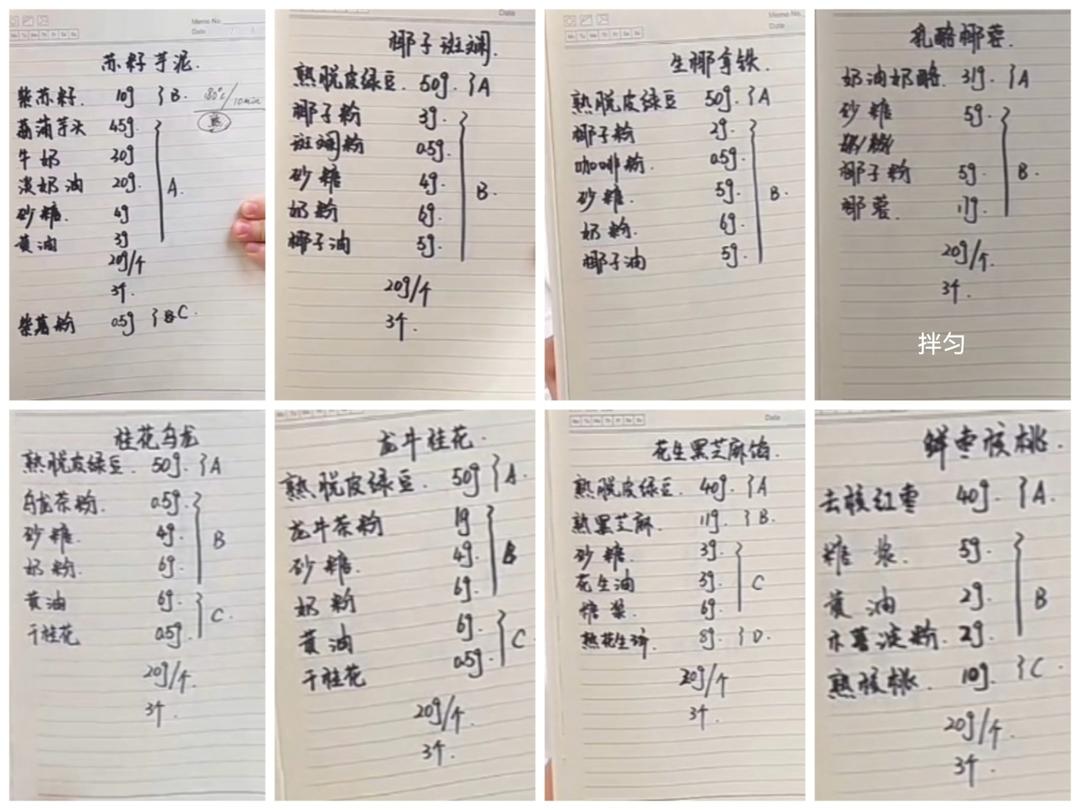 Memo No.
Date
苏籽芋泥.
紫苏籽. 10g }B. 180℃/10min
荔浦芋头 45g 熟
牛奶 30g
淡奶油 20g. A.
砂糖. 4g
黄油 3g
20g/个
3个.
紫薯粉 0.5g }C.
Date
椰子斑斓.
熟脱皮绿豆. 50g. }A
椰子粉 3g.
斑斓粉 0.5g.
砂糖 4g. B.
奶粉 6g.
椰子油 5g.
20g/个
3个.
Memo No.
Date
生椰拿铁.
熟脱皮绿豆 50g. }A
椰子粉 2g.
咖啡粉. 0.5g.
砂糖 5g. B.
奶粉. 6g.
椰子油 5g.
乳酪椰蓉.
奶油奶酪. 31g. }A
砂糖 5g.
椰子粉 5g. B.
椰蓉. 11g.
20g/个.
3个.
拌匀
桂花乌龙
熟脱皮绿豆. 50g. }A
乌龙茶粉. 0.5g.
砂糖. 4g. B
奶粉. 6g.
黄油 6g. C.
干桂花 0.5g.
20g/个.
3个.
龙牛桂花.
熟脱皮绿豆. 50g. }A.
龙牛茶粉 1g
砂糖. 4g. B
奶粉 6g.
黄油 6g. C
干桂花 0.5g.
20g/个.
3个.
Date
花生黑芝麻馅.
熟脱皮绿豆. 40g. }A
熟黑芝麻. 11g. }B.
砂糖. 3g.
花生油 3g. C
糖浆. 6g.
熟花生碎. 8g. }D.
20g/个.
3个.
鲜枣核桃.
去核红枣 40g. }A.
糖浆. 5g.
黄油 2g. B
木薯淀粉. 2g.
熟核桃. 10g. }C
20g/个.
3个.